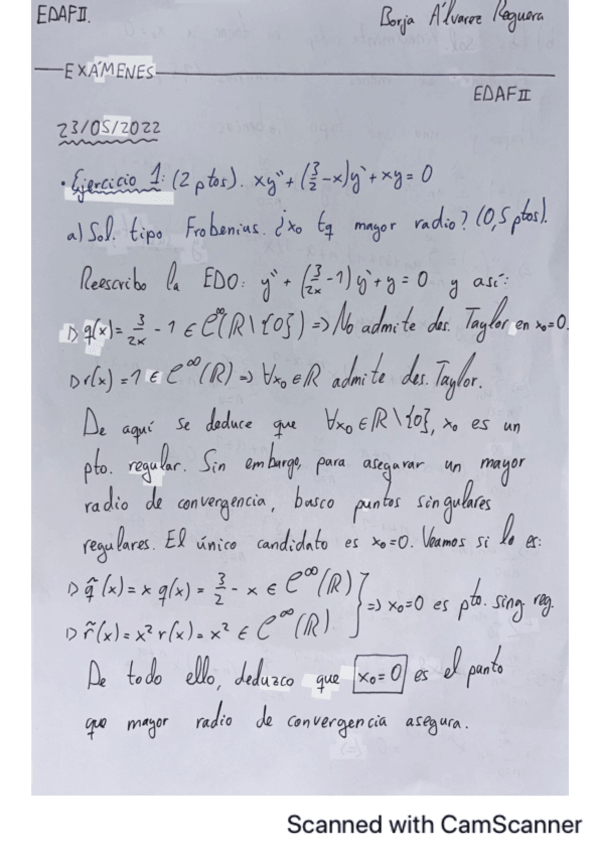 EDAF II.
Borja Álvarez Reguera
EXÁMENES
EDAF II
23/05/2022
· Ejercicio 1: (2 ptos). xy'' + (3/2 - x)y' + xy = 0
a) Sol. tipo Frobenius. ¿x₀ tq mayor radio? (0,5 ptos).
Reescribo la EDO: y'' + (3/2x - 1) y' + y = 0 y así:
▷ q(x) = 3/2x - 1 ∈ C^∞(ℝ\{0}) => No admite des. Taylor en x₀=0.
▷ r(x) = 1 ∈ C^∞(ℝ) => ∀x₀∈ℝ admite des. Taylor.
De aquí se deduce que ∀x₀∈ℝ\{0}, x₀ es un
pto. regular. Sin embargo, para asegurar un mayor
radio de convergencia, busco puntos singulares
regulares. El único candidato es x₀=0. Veamos si lo es:
▷ q̃(x) = x q(x) = 3/2 - x ∈ C^∞(ℝ)
▷ r̃(x) = x² r(x) = x² ∈ C^∞(ℝ) } => x₀=0 es pto. sing reg.
De todo ello, deduzco que x₀=0 es el punto
que mayor radio de convergencia asegura.
Scanned with CamScanner